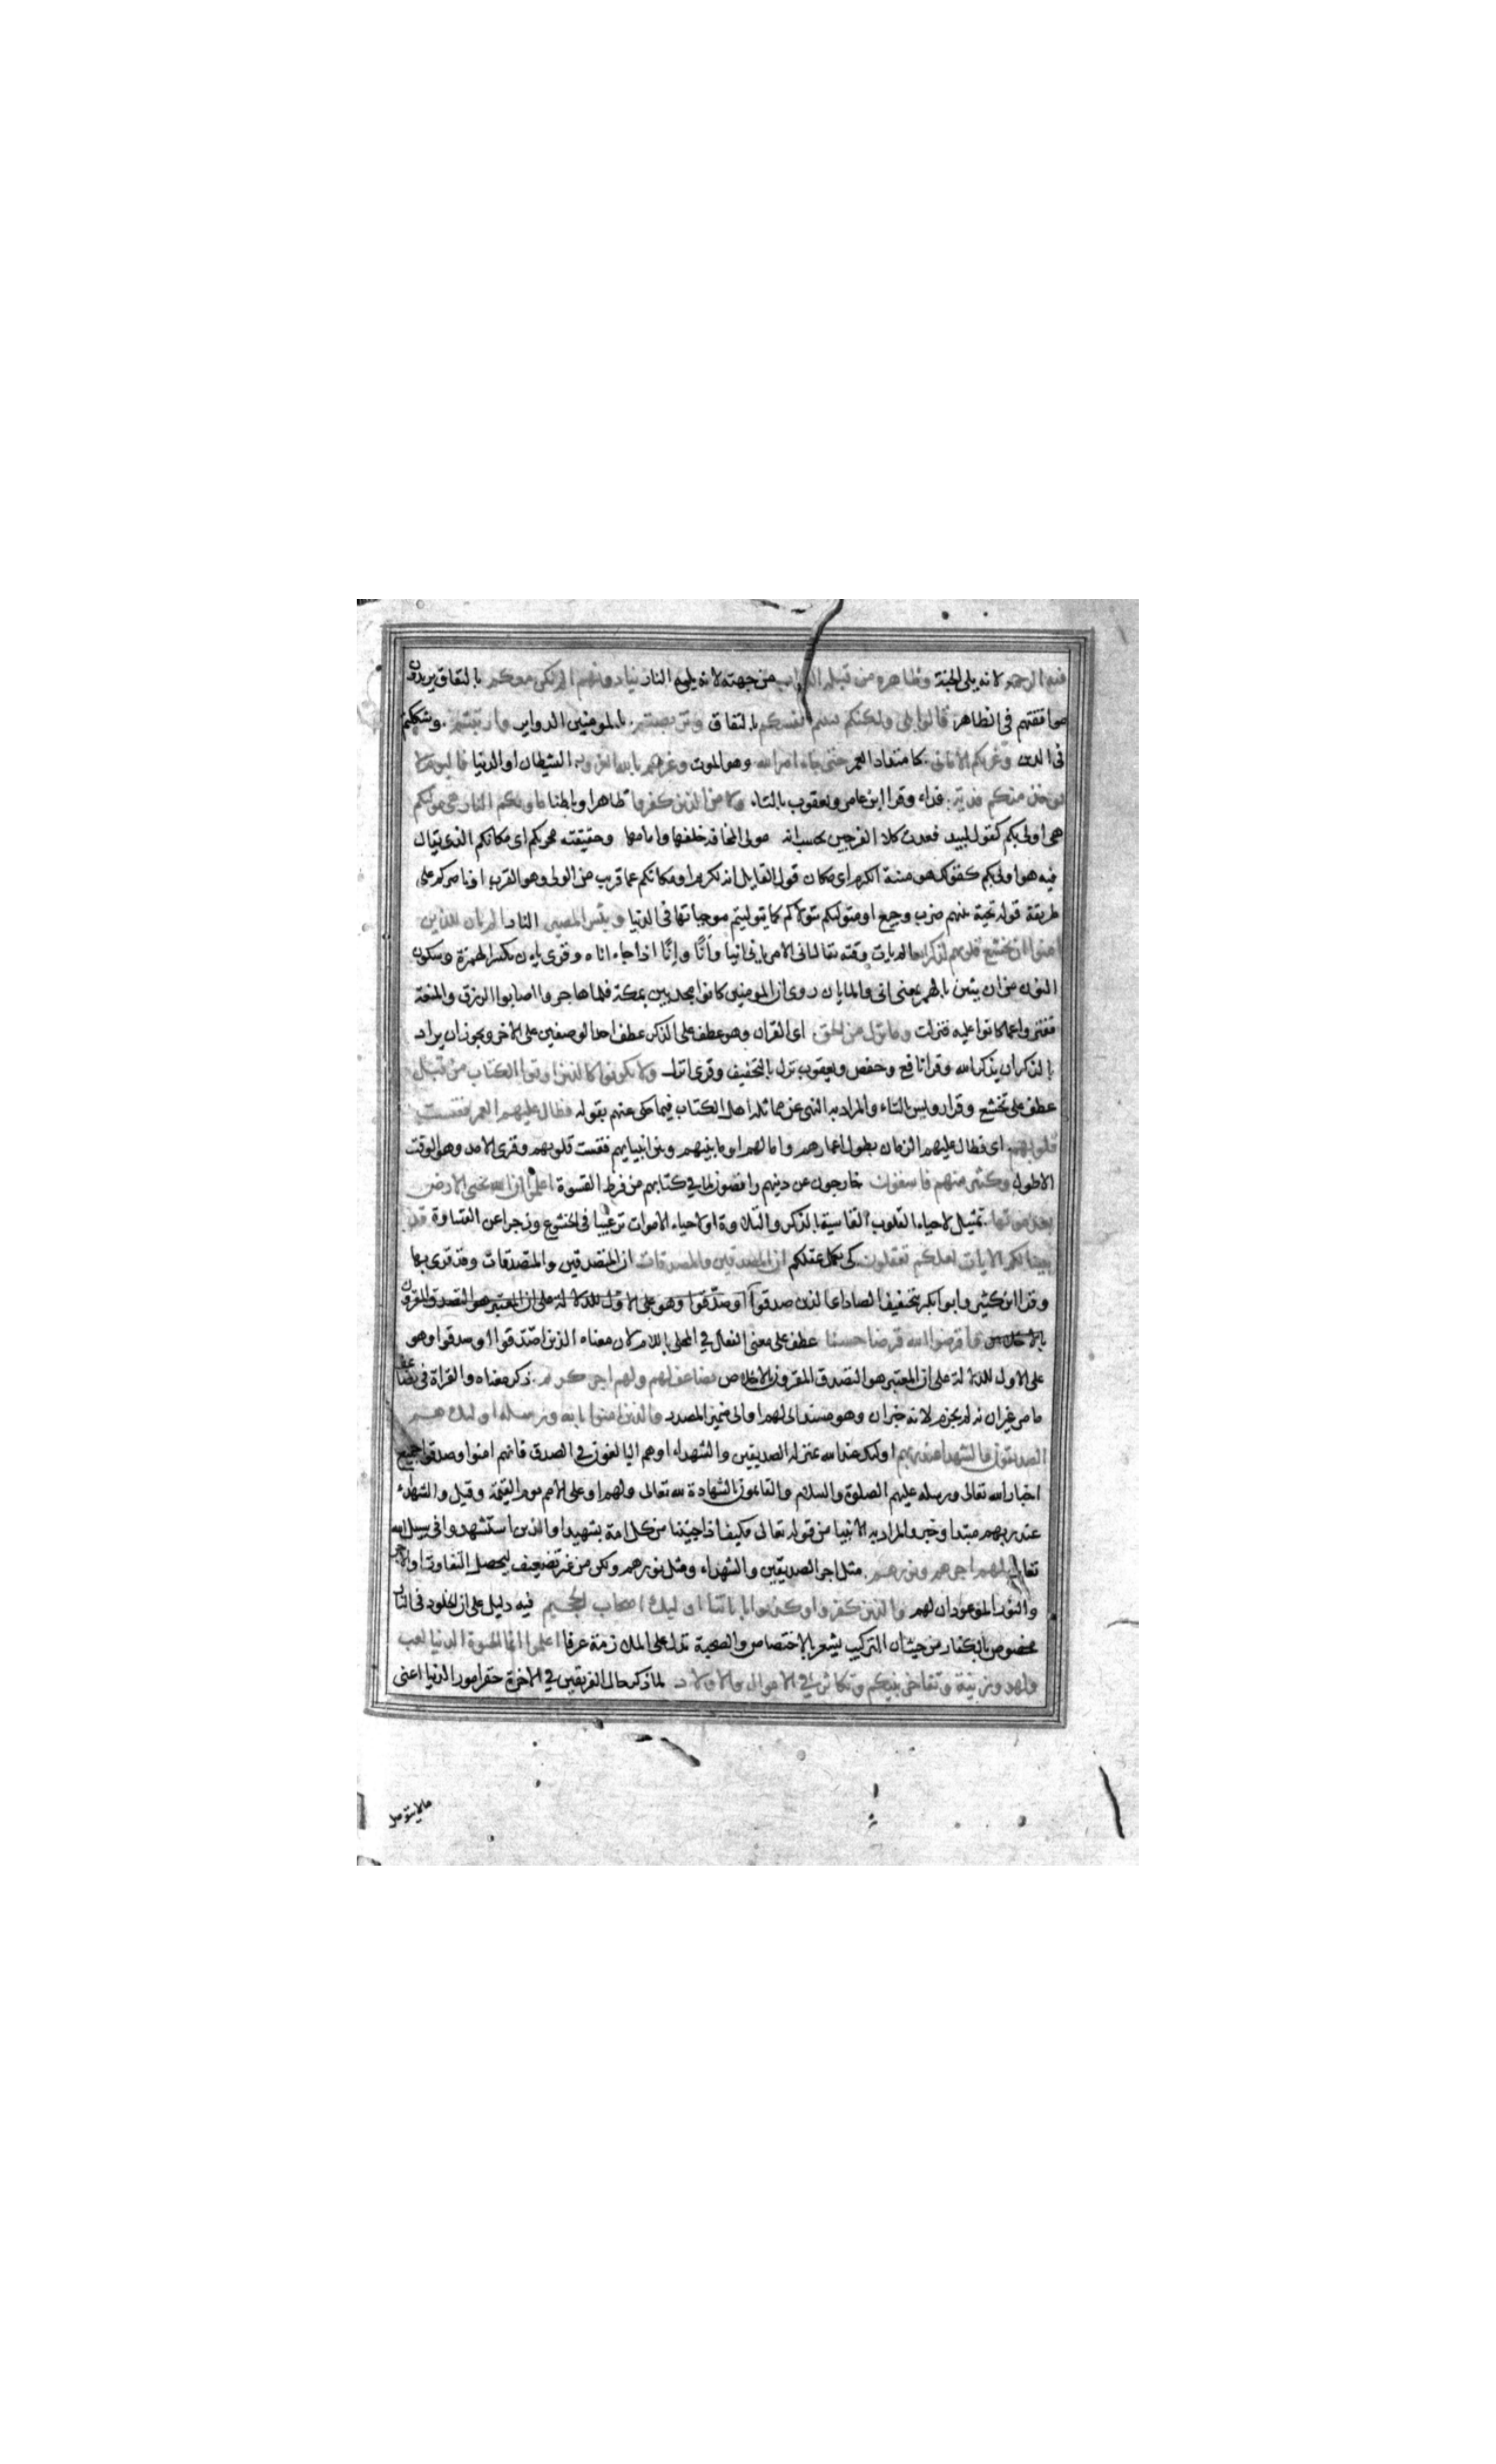 فيه الرحمة لانه يلى الجنة وظاهره من قبله العذاب من جهته لانه يلى النار ينادونهم الم نكن معكم بالنفاق يريدون
موافقتهم فى الظاهر قالوا بلى ولكنكم فتنتم انفسكم بالنفاق وتربصتم بالمومنين الدواير وارتبتم وشككتم
فى الدين وغرتكم الامانى كامتداد العمر حتى جاء امر الله وهو الموت وغركم بالله الغرور الشيطان او الدنيا فاليوم لا
يوخذ منكم فدية فداء وقرا ابن عامر ويعقوب بالتاء ولا من الذين كفروا ظاهرا وباطنا ماويكم النار هى موليكم
هى اولى بكم كقول لبيد فغدت كلا الفرجين تحسب انه مولى المخافة خلفها وامامها وحقيقته محريكم اى مكانكم الذى يقال
فيه هو اولى بكم كقولك هو مئنة الكرم اى مكان قول القايل انه لكريم او مكانكم عما قريب من الولى وهو القرب او ناصركم على
طريقة قوله تحية بينهم ضرب وجيع او متوليكم يتولاكم كما توليتم موجباتها فى الدنيا وبئس المصير النار الم يان للذين
امنوا ان تخشع قلوبهم لذكر الله الم يات وقته يقال انى الامر يانى انيا وأنا وإنا اذا جاء اناه وقرى الم يئن بكسر الهمزة وسكون
النون من ان يئين بالهمز بمعنى انى والما يان روى ان المومنين كانوا مجدبين بمكة فلما هاجروا اصابوا الرزق والنعمة
ففتروا عما كانوا عليه فنزلت وما نزل من الحق اى القران وهو عطف على الذكر عطف احد الوصفين على الاخر ويجوز ان يراد
بالذكر ان يذكر الله وقرا نافع وحفص ويعقوب نزل بالتخفيف وقرى انزل ولا يكونوا كالذين اوتوا الكتاب من قبل
عطف على تخشع وقرا رويس بالتاء والمراد به النهى عن مماثلة اهل الكتاب فيما حكى عنهم بقوله فطال عليهم العمر فقست
قلوبهم اى فطال عليهم الزمان بطول اعمارهم وامالهم او ما بينهم وبين انبيايهم فقست قلوبهم وقرى الامد وهو الوقت
الاطول وكثير منهم فاسقون خارجون عن دينهم رافضون لما فى كتابهم من فرط القسوة اعلموا ان الله يحيى الارض
بعد موتها تمثيل لاحياء القلوب القاسية بالذكر والتلاوة او لاحياء الاموات ترغيبا فى الخشوع وزجرا عن القساوة قد
بينا لكم الايات لعلكم تعقلون كى يكمل عقلكم ان المصدقين والمصدقات ان المتصدقين والمتصدقات وقد قرى بهما
وقرا ابن كثير وابو بكر بتخفيف الصاد اى الذين صدقوا او صدقوا وهو على الاول للدلالة على ان المعتبر هو التصدق المقرون
بالاخلاص واقرضوا الله قرضا حسنا عطف على معنى الفعل فى المحلى باللام لان معناه الذين اصدقوا او صدقوا وهو
على الاول للدلالة على ان المعتبر هو التصدق المقرون بالاخلاص يضاعف لهم ولهم اجر كريم ذكر معناه والقراة فى يضاعف
ما مر غير ان لم يجزم لانه خبر ان وهو مسند الى لهم او الى ضمير المصدر والذين امنوا بالله ورسله اوليك هم
الصديقون والشهدا عند ربهم اوليك عند الله بمنزلة الصديقين والشهداء او هم البالغون فى الصدق فانهم امنوا وصدقوا جميع
اخبار الله تعالى ورسله عليهم الصلوة والسلام والقايمون بالشهادة لله تعالى ولهم او على الامم يوم القيمة وقيل والشهداء
عند ربهم مبتدا وخبر والمراد به الانبيا من قوله تعالى فكيف اذا جيئنا من كل امة بشهيد او الذين استشهدوا فى سبيل الله
تعالى لهم اجرهم ونورهم مثل اجر الصديقين والشهداء ومثل نورهم ولكن من غير تضعيف ليحصل التفاوت او الاجر
والنور الموعودان لهم والذين كفروا وكذبوا باياتنا اوليك اصحاب الجحيم فيه دليل على ان الخلود فى النار
مخصوص بالكفار من حيث ان التركيب يشعر بالاختصاص والصحبة تدل على الملازمة عرفا اعلموا انما الحيوة الدنيا لعب
ولهو وزينة وتفاخر بينكم وتكاثر فى الاموال والاولاد لما ذكر حال الفريقين فى الاخرة حقر امور الدنيا اعنى
ما لا يتوصل